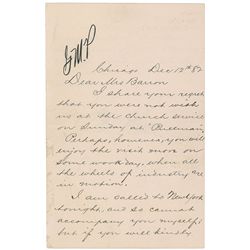 G.M.P
Chicago Dec 13th 87
Dear Mrs Barron
I share your regret
that you were not with
us at the church service
on Sunday at Pullman.
Perhaps, however, you will
enjoy the visit more on
some workday, when all
the wheels of industry are
in motion.
I am called to New York
tonight, and so cannot
accompany you myself,
but if you will kindly